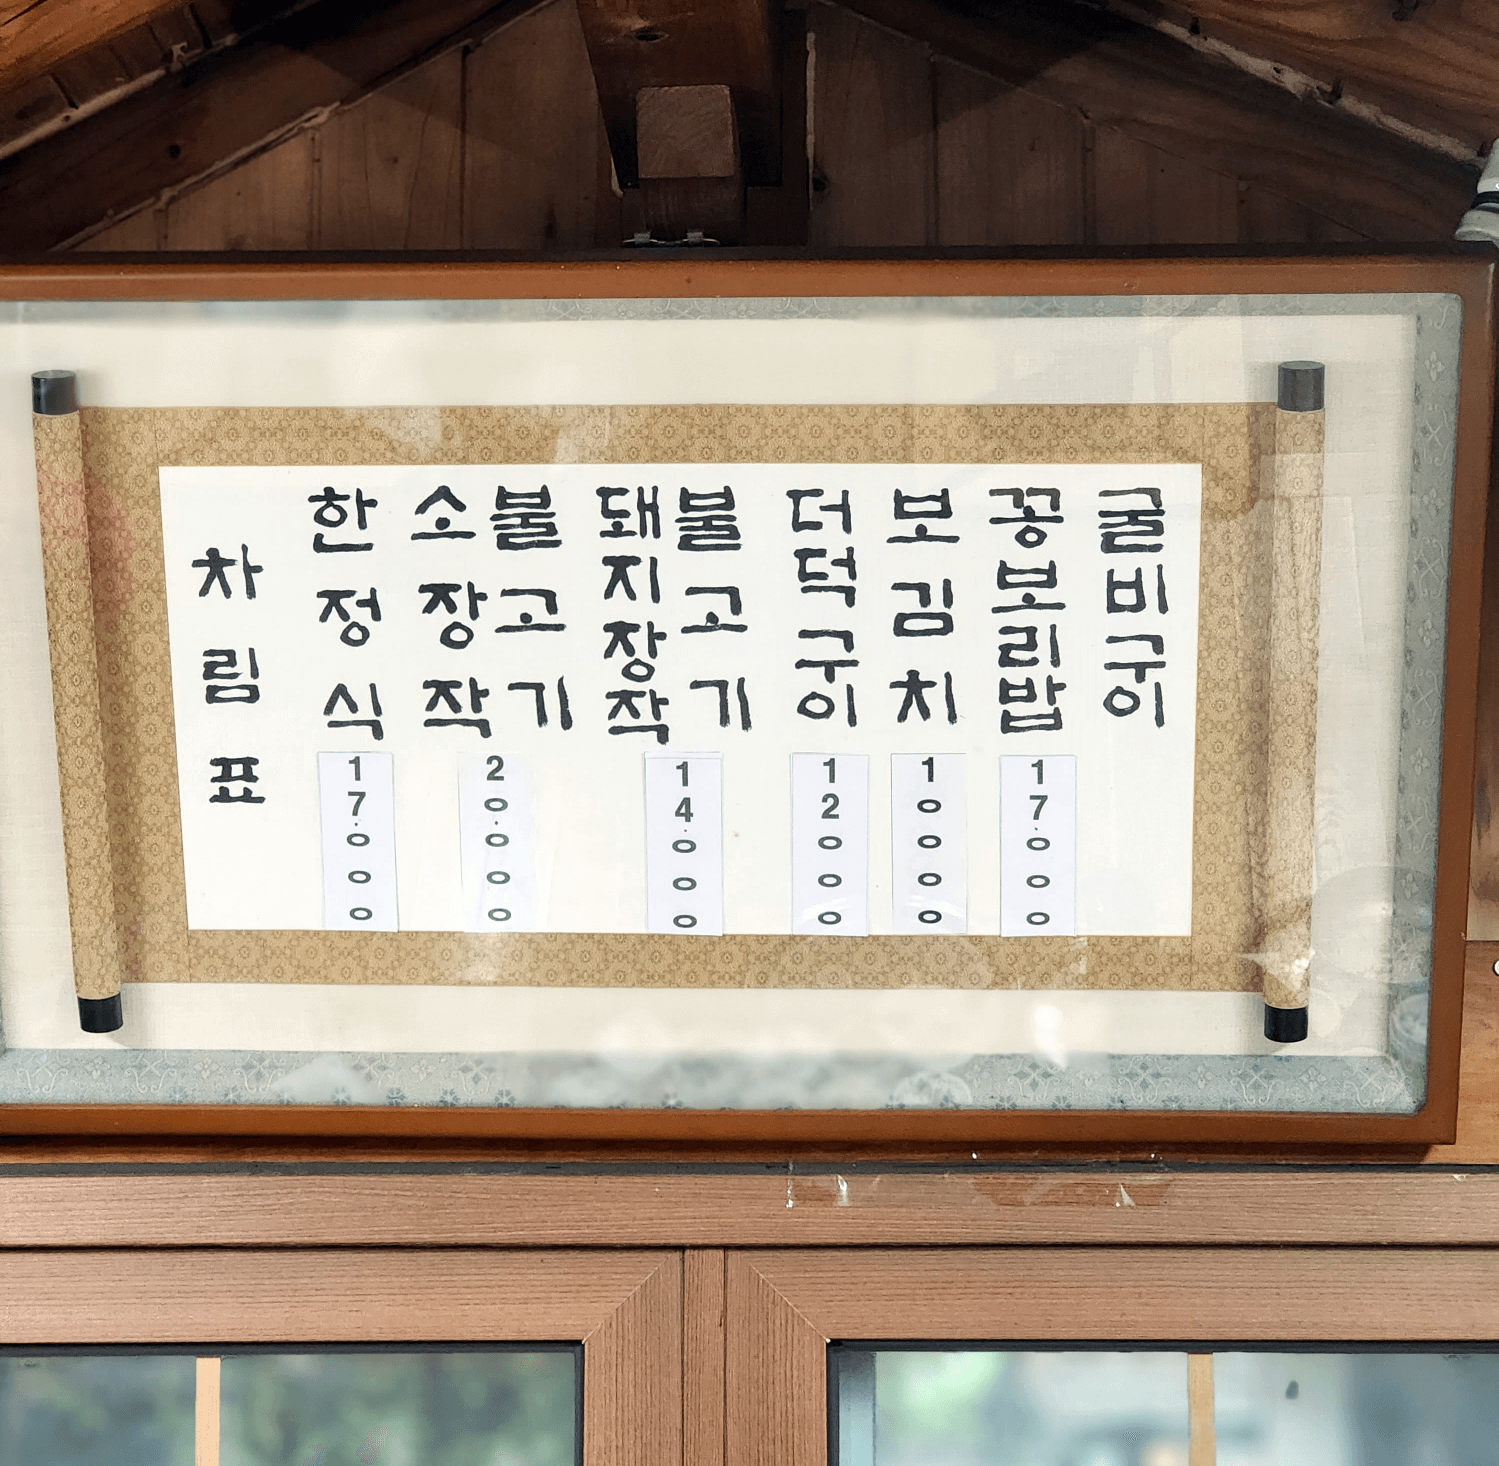 차림표
한정식
17.000
소장작
불고기
20.000
돼지장작
불고기
14.000
더덕구이
12000
보김치
10000
꽁보리밥
17.000
굴비구이